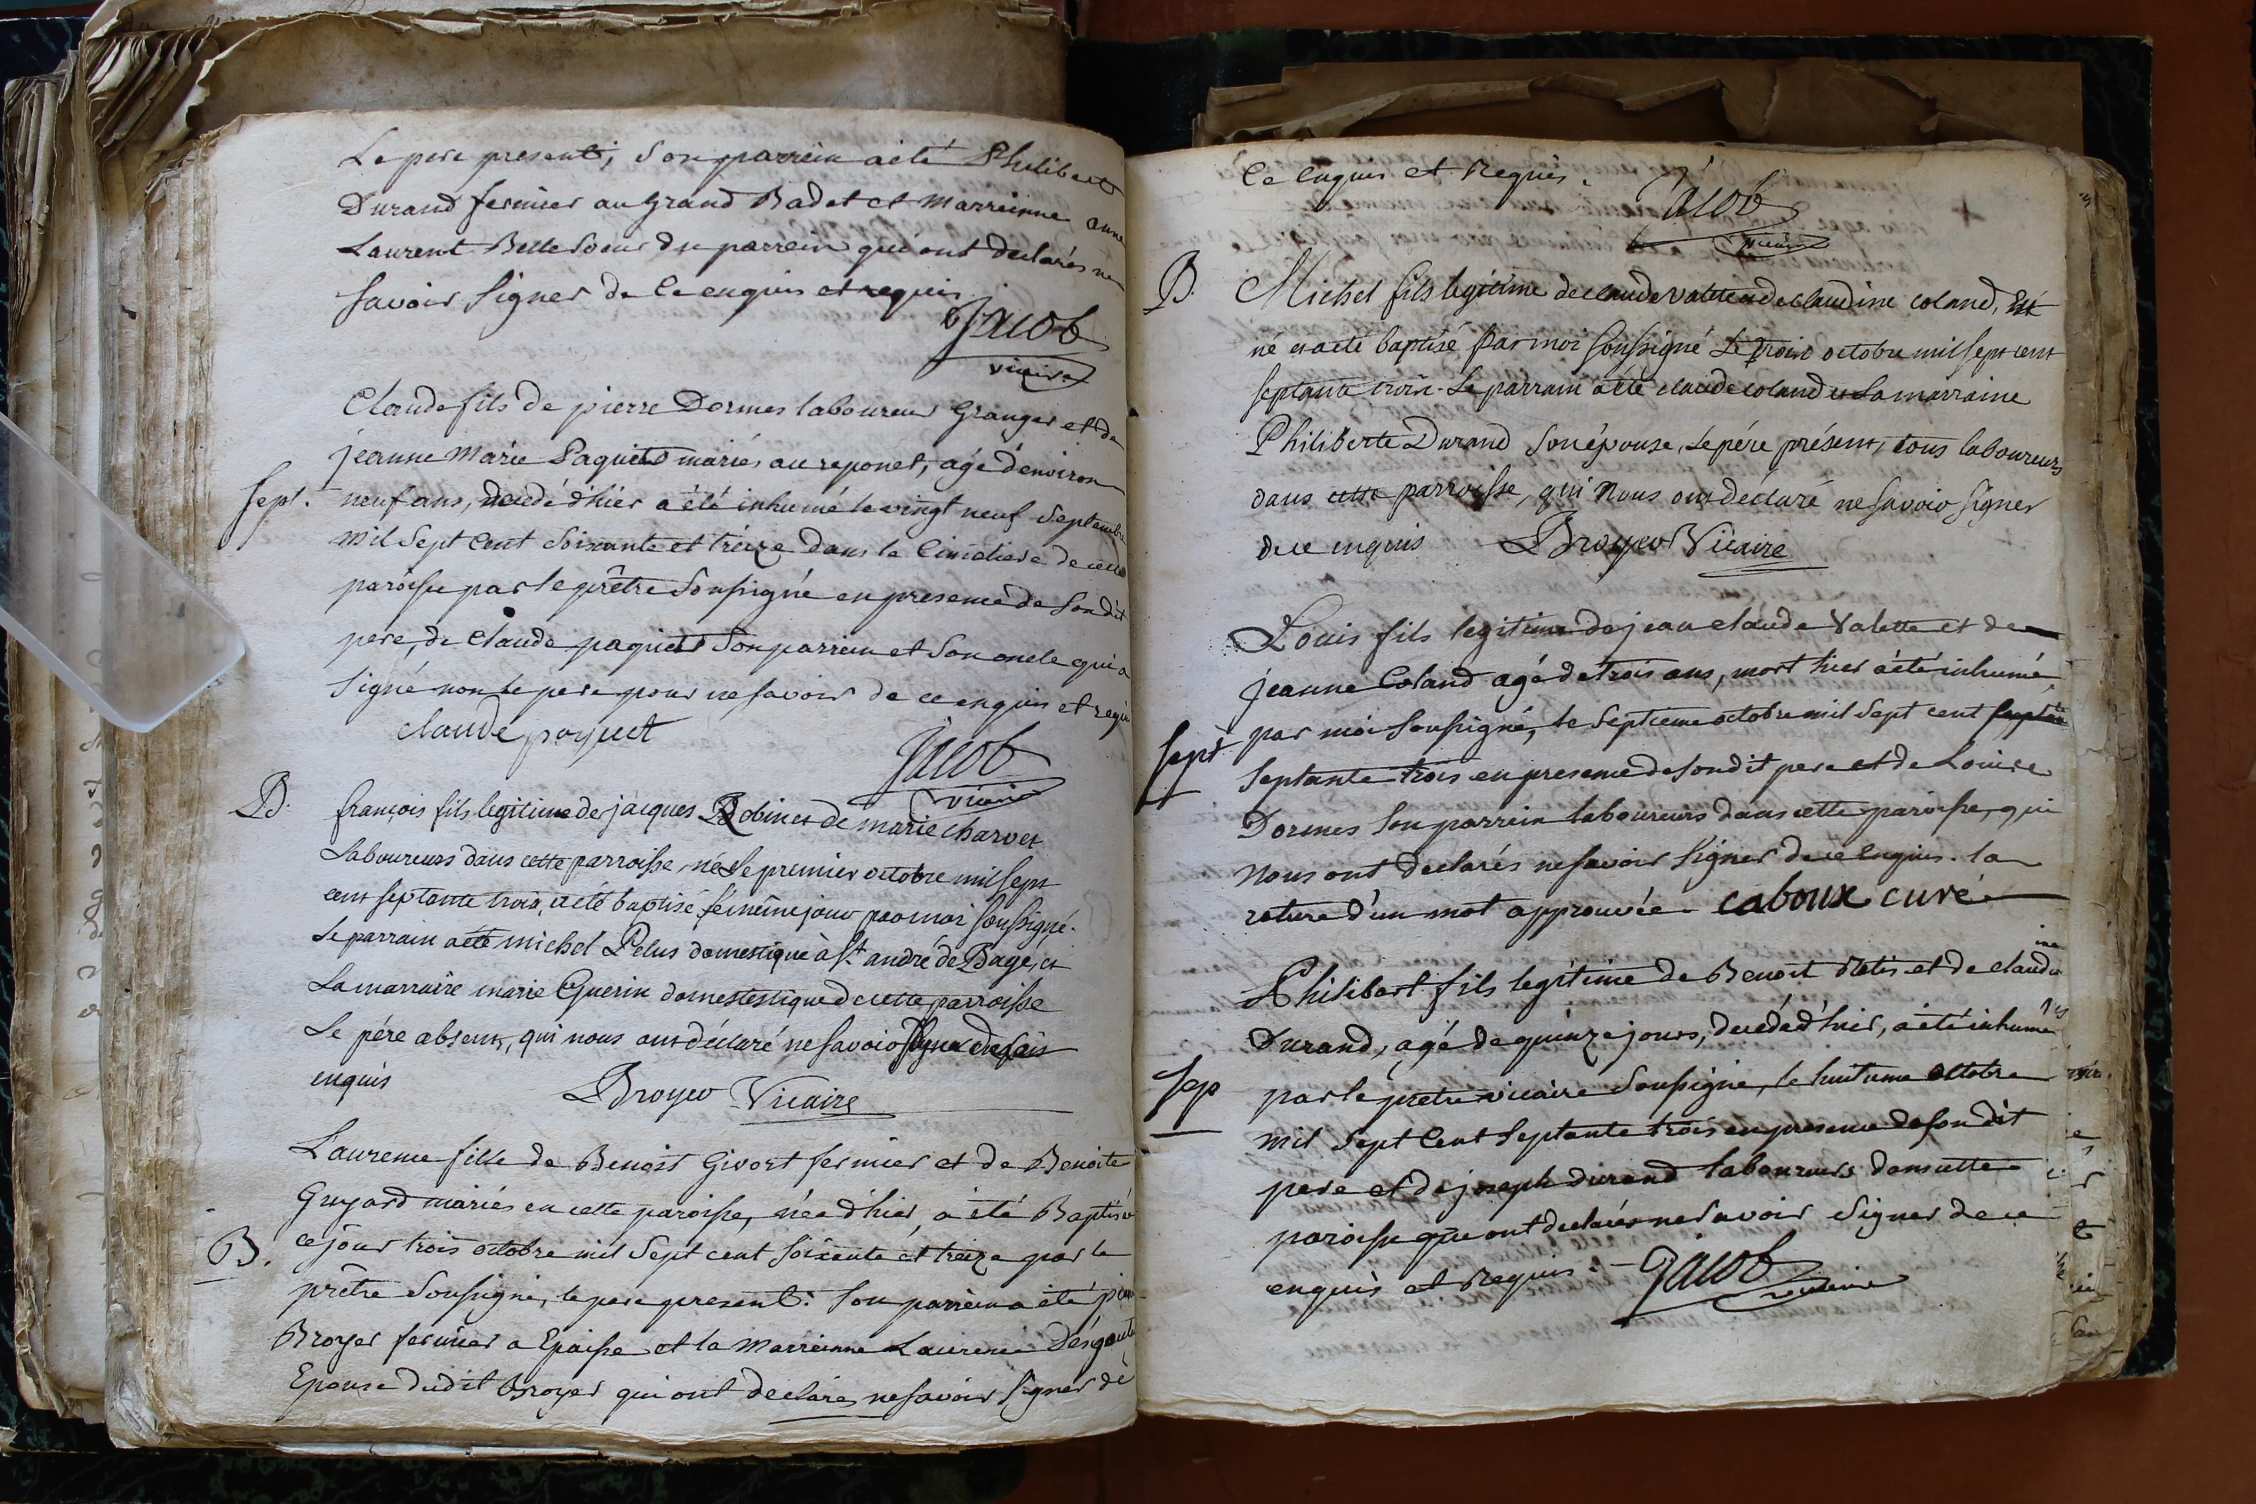 Le pere present, son parrein a été Philibert
Durand fermier au grand Badet et marreinne anne
Laurent Belle Soeur du parrein qui ont declarés ne
savoir signer de ce enquis et requis
Jacob
vicaire
Claude fils de pierre Dormes laboureur Granger et de
jeanne Marie Paquet mariés au reponet, agé d'environ
Sept. neuf ans, decedé d'hier a été inhumé le vingt neuf Septembre
mil Sept Cent Soixante et treize dans le Cimetiere de cette
paroisse par le prêtre Soussigné en presence de Son dit
pere, de Claude paquet Son parrein et Son oncle qui a
Signé non le pere pour ne savoir de ce enquis et requis
claude payuet
Jacob
vicaire
B. françois fils legitime de jacques Robin et de marie charvet
Laboureurs dans cette parroisse, né Le premier octobre mil sept
cent septante trois, a été baptisé le même jour par moi soussigné.
Le parrain a été michel Pelus domestique à St. andré de Bagé, et
La marraine marie Guerin domestestique de cette parroisse
Le pére absent, qui nous ont déclaré ne savoir signer
enquis Broyer Vicaire
Laurence fille de Benoit Givort fermier et de Benoite
Guyard mariés en cette paroisse, née d'hier, a été Baptisée
B. ce jour trois octobre mil Sept cent soixante et treize par le
prêtre Soussigné, le pere present. Son parrein a été pierre
Broyer fermier a Epaisse et la Marreinne Laurence Desgoutte
Epouse dudit Broyer qui ont declarés ne savoir signer de
Ce enquis et Requis.
Jacob
vicaire
B. Michel fils legitime de claude valette et de claudine coland, Est
né et a eté baptisé par moi soussigné Le trois octobre mil sept cent
septante trois. Le parrain a été claude coland et La marraine
Philiberte Durand son épouse, Le pére présent, tous laboureurs
dans cette parroisse, qui Nous ont déclaré ne savoir signer
de ce enquis Broyer Vicaire
Louis fils legitime de jean claude Valette et de
jeanne Coland agé de trois ans, mort hier a été inhumé,
par moi soussigné, le Septieme octobre mil Sept cent
Sept Septante trois en presence de son dit pere et de Louise
Dormes son parrein laboureurs dans cette paroisse, qui
nous ont declarés ne savoir signer de ce enquis. la
rature d'un mot approuvée. caboux curé
Philibert fils legitime de Benoit Metis et de claudine
Durand, agé de quinze jours, decedé d'hier, a été inhumé
Sep par le pretre vicaire Soussigné, le huitieme octobre
mil Sept Cent Septante trois en presence de son dit
pere et de joseph durand laboureurs dans cette
paroisse qui ont declarés ne savoir Signer de ce
enquis et Requis.
Jacob
vicaire